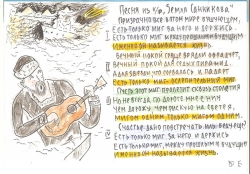 Песня из к/ф "Земля Санникова"
Призрачно всё в этом мире бушующем,
Есть только миг, за него и держись.
Есть только миг между прошлым и будущим
Именно он называется жизнь.
Вечный покой сердце вряд ли обрадует
Вечный покой для седых пирамид
А для звезды что сорвалась и падает
Есть только миг, ослепительный миг.
пролетит столько столетия
Но не всегда по дороге мне с ним
Чем дорожу, чем рискую на свете я
Мигом одним, только мигом одним.
Счастье дано повстречать
Есть только миг, за него и держись
Есть только миг, между прошлым и будущим
Именно он называется жизнь.